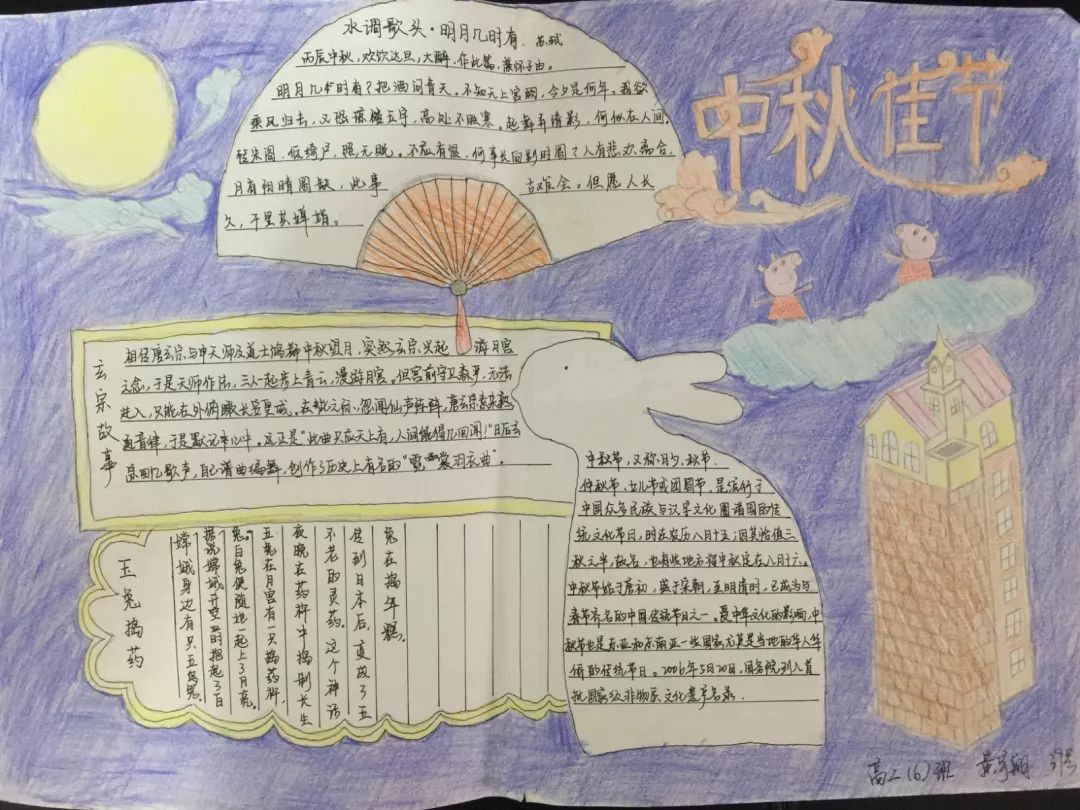 中秋佳节
水调歌头·明月几时有. 苏轼
丙辰中秋,欢饮达旦,大醉,作此篇,兼怀子由。
明月几时有?把酒问青天。不知天上宫阙,今夕是何年。我欲
乘风归去,又恐琼楼玉宇,高处不胜寒。起舞弄清影,何似在人间.
转朱阁,低绮户,照无眠。不应有恨,何事长向别时圆?人有悲欢离合,
月有阴晴圆缺,此事古难全。但愿人长
久,千里共婵娟。
玄宗故事
相传唐玄宗与申天师及道士鸿都中秋望月,突然玄宗兴起游月宫
之念,于是天师作法,三人一起步上青云,漫游月宫。但宫前守卫森严,无法
进入,只能在外俯瞰长安皇城。在此之际,忽闻仙声阵阵,唐玄宗素来熟
通音律,于是默记于心中。这正是"此曲只应天上有,人间能得几回闻!"日后玄
宗回忆歌声,自己谱曲编舞,创作了历史上有名的"霓裳羽衣曲"。
玉兔捣药
嫦娥身边有只玉兔。
据说嫦娥开空时抱起了白
兔。白兔便随她一起上了月亮。
玉兔在月宫有一只捣药杵,
夜晚在药杵中捣制长生
不老的灵药。这个神话
传到日本后,变成了玉
兔在捣年糕。
中秋节,又称月夕、秋节、
仲秋节、女儿节或团圆节,是流行于
中国众多民族与汉字文化圈诸国的传
统文化节日,时在农历八月十五;因其恰值三
秋之半,故名,也有些地方将中秋定在八月十六。
中秋节始于唐初,盛于宋朝,至明清时,已成为与
春节齐名的中国传统节日之一。受中华文化的影响,中
秋节也是东亚和东南亚一些国家尤其是当地的华人华
侨的传统节日。2006年5月20日,国务院列入首
批国家级非物质文化遗产名录.
高二(6)班